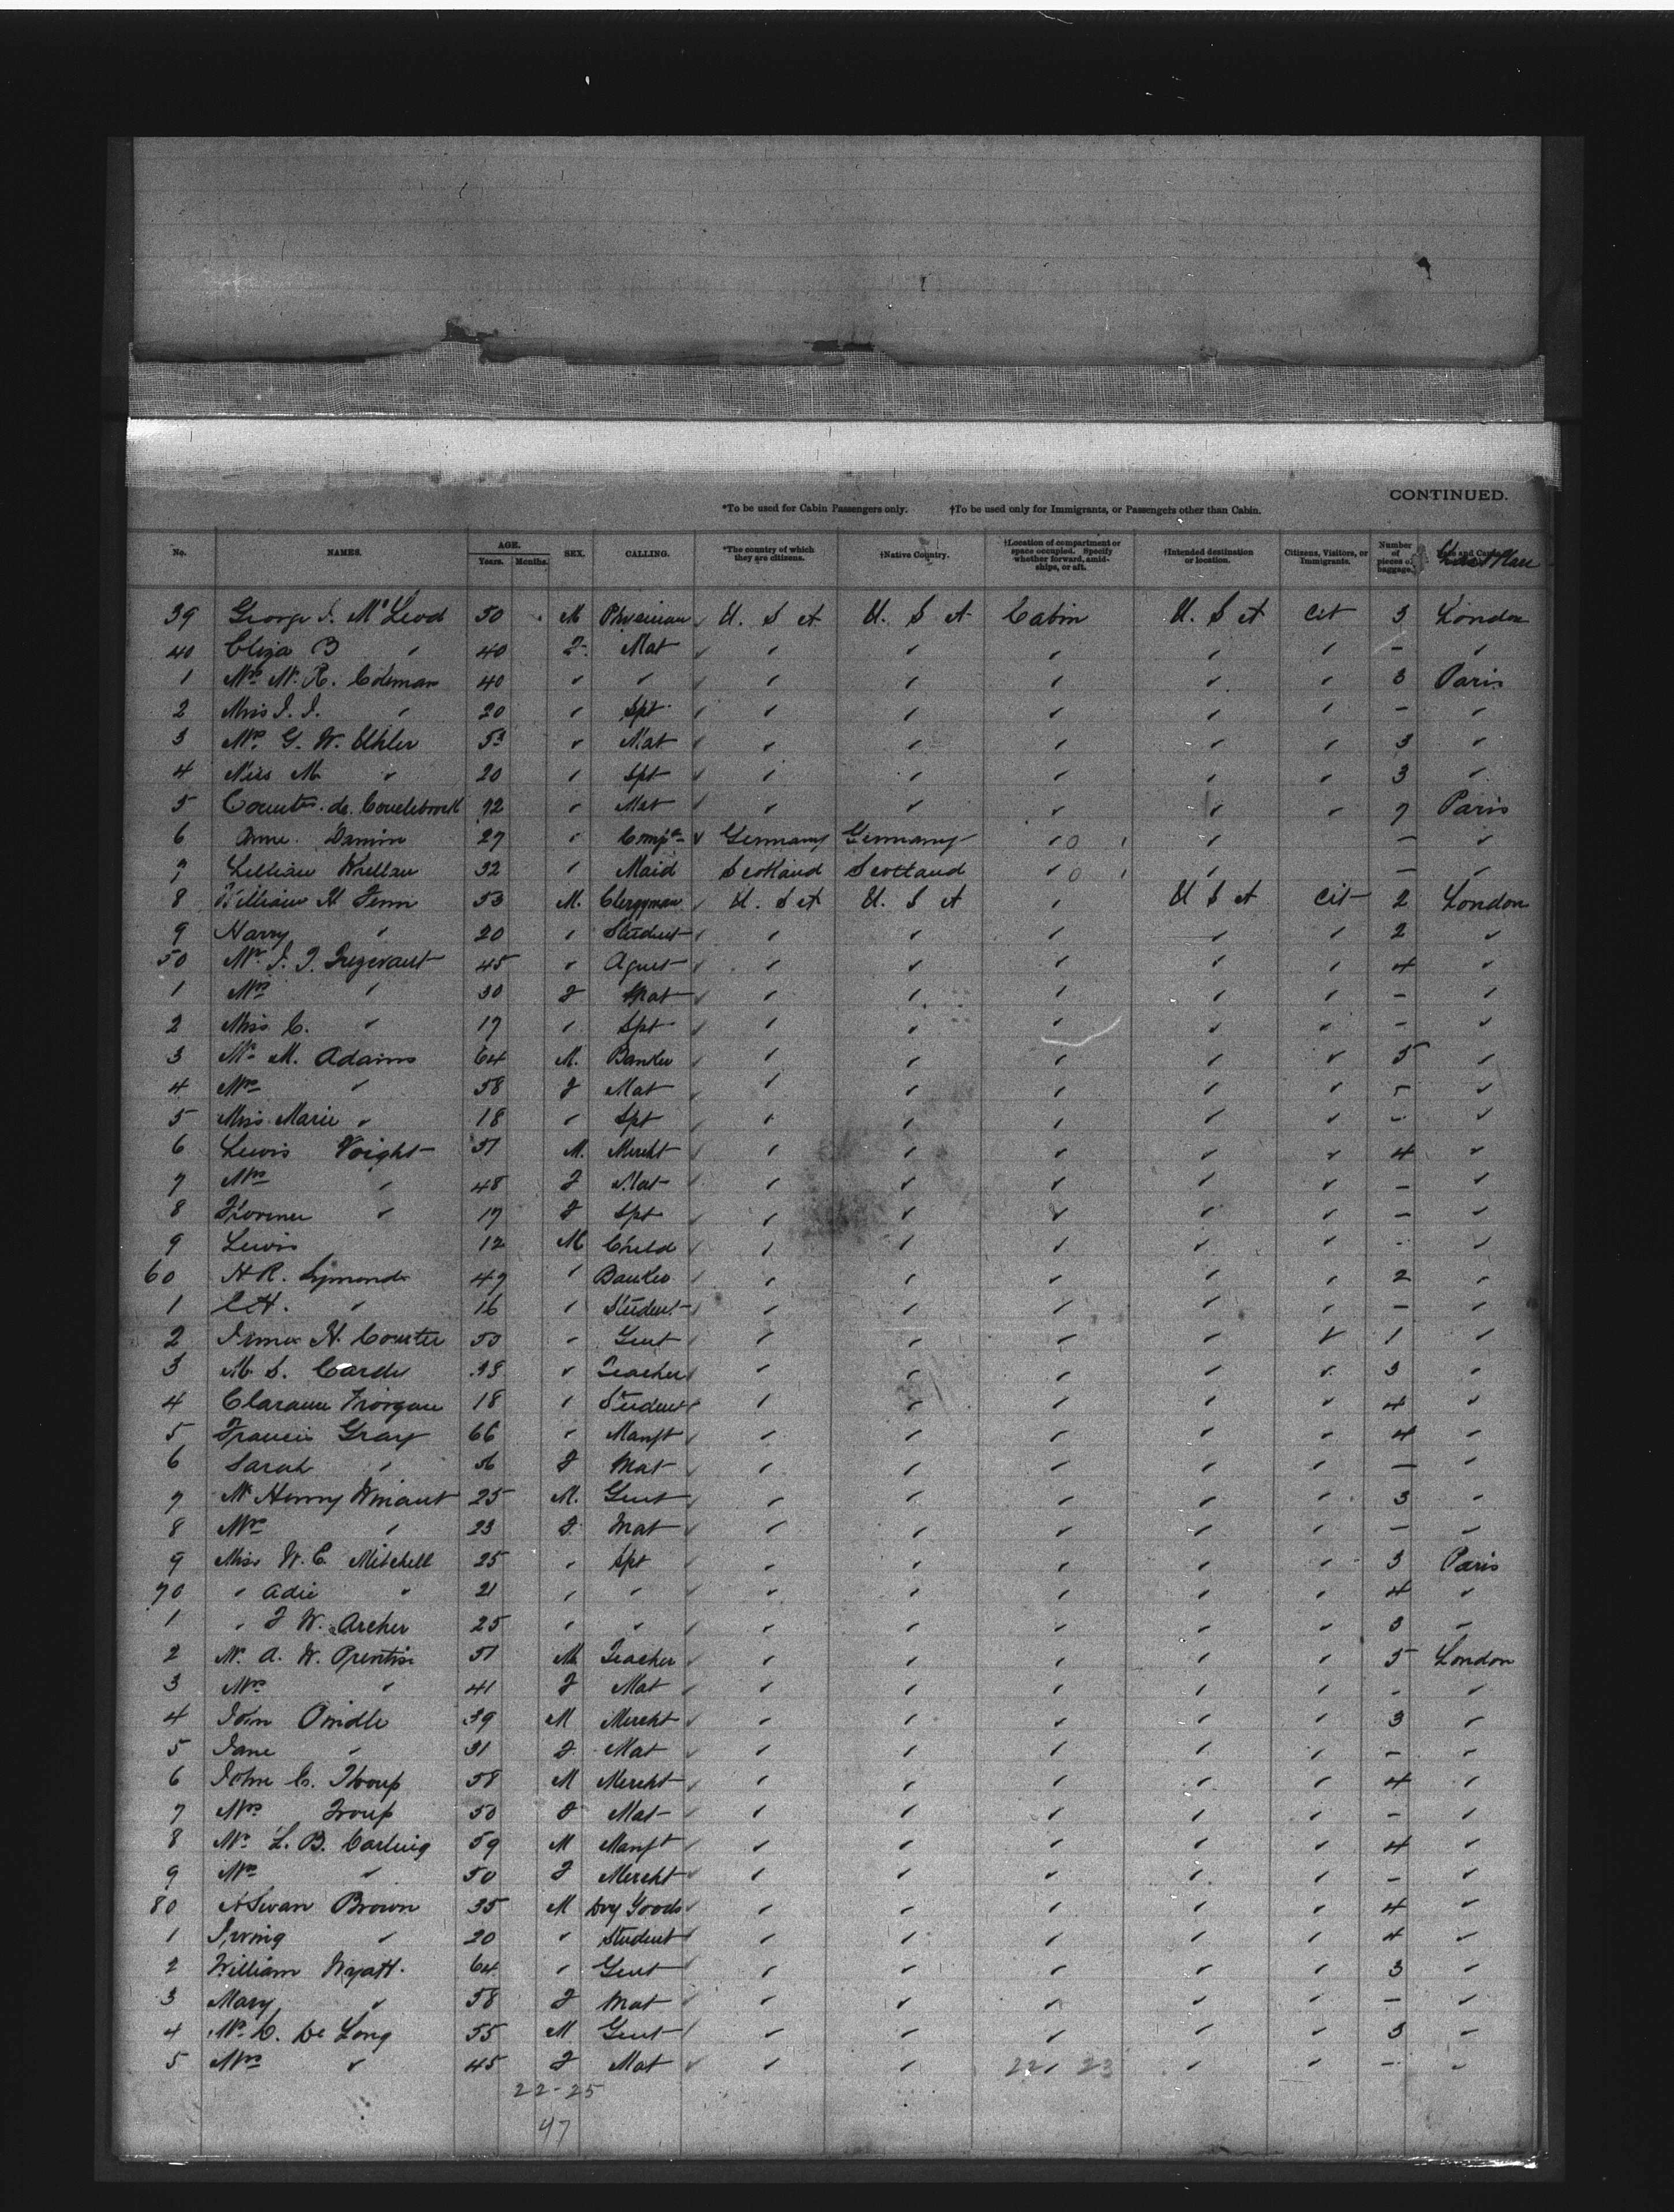 CONTINUED.
*To be used for Cabin Passengers only. †To be used only for Immigrants, or Passengers other than Cabin.
No. NAMES. AGE. Years. Months. SEX. CALLING. *The country of which they are citizens. †Native Country. †Location of compartment or space occupied. Specify whether forward, amidships, or aft. †Intended destination or location. Citizens, Visitors, or Immigrants. Number of pieces of baggage.
39 George J. McLeod 50 M Physician U. S A U. S A Cabin U. S A Cit 3 London
40 Eliza B " 40 F Mat " " " " " - "
1 Mrs N. R. Coleman 40 " " " " " " " 3 Paris
2 Miss J. J. " 20 " Spt " " " " " - "
3 Mrs G. W. Uhler 53 " Mat " " " " " 3 "
4 Miss M " 20 " Spt " " " " " 3 "
5 Countes de 72 " Mat " " " " " 7 Paris
6 Anne Damin 27 " Compn Germany Germany " 0 " - "
7 Lillian 32 " Maid Scotland Scotland " 0 " - "
8 William H Fenn 53 M. Clergyman U. S A U. S A " U S A Cit 2 London
9 Harry " 20 " Student " " " " " 2 "
50 Mr J. T. Trezevant 45 " Agent " " " " " 4 "
1 Mrs " 30 F Mat " " " " " - "
2 Miss C. " 17 " Spt " " " " " - "
3 Mr M. Adams 64 M. Banker " " " " " 5 "
4 Mrs " 58 F Mat " " " " " - "
5 Miss Marie " 18 " Spt " " " " " - "
6 Lewis Voight 51 M. Mercht " " " " " 4 "
7 Mrs " 48 F Mat " " " " " - "
8 Florence " 17 F Spt " " " " " - "
9 Lewis 12 M Child " " " " " - "
60 H R. Symonds 47 " Banker " " " " " 2 "
1 C H. " 16 " Student " " " " " - "
2 H. 53 " Gent " " " " " 1 "
3 M. S. " Teacher " " " " " 3 "
4 Clarence Morgan 18 " Student " " " " " 4 "
5 Francis Gray 66 " Manft " " " " " 4 "
6 Sarah " 56 F Mat " " " " " - "
7 Mr Henry Winant 25 M. Gent " " " " " 3 "
8 Mrs " 23 F. Mat " " " " " - "
9 Miss W. C. Mitchell 25 " Spt " " " " " 3 Paris
70 " Adie " 21 " " " " " " " 4 "
1 " F W. Archer 25 " " " " " " " 3 "
2 Mr A. W. Prentis 51 M Teacher " " " " " 5 London
3 Mrs " 41 F Mat " " " " " - "
4 John 39 M Mercht " " " " " 3 "
5 Jane " 31 F Mat " " " " " - "
6 John C. Troup 58 M Mercht " " " " " 4 "
7 Mrs Troup 50 F Mat " " " " " - "
8 Mr L. B. Darling 59 M Manft " " " " " 4 "
9 Mrs " 50 F Mercht " " " " " - "
80 A Swan Brown 35 M Dry Goods " " " " " 4 "
1 Irving " 20 " Student " " " " " 4 "
2 William Wyatt. 64 " Gent " " " " " 3 "
3 Mary " 58 F Mat " " " " " - "
4 Mr C. De Long 55 M Gent " " " " " 3 "
5 Mrs " 45 F Mat " " 22 " 23 " " - "
22-25
47